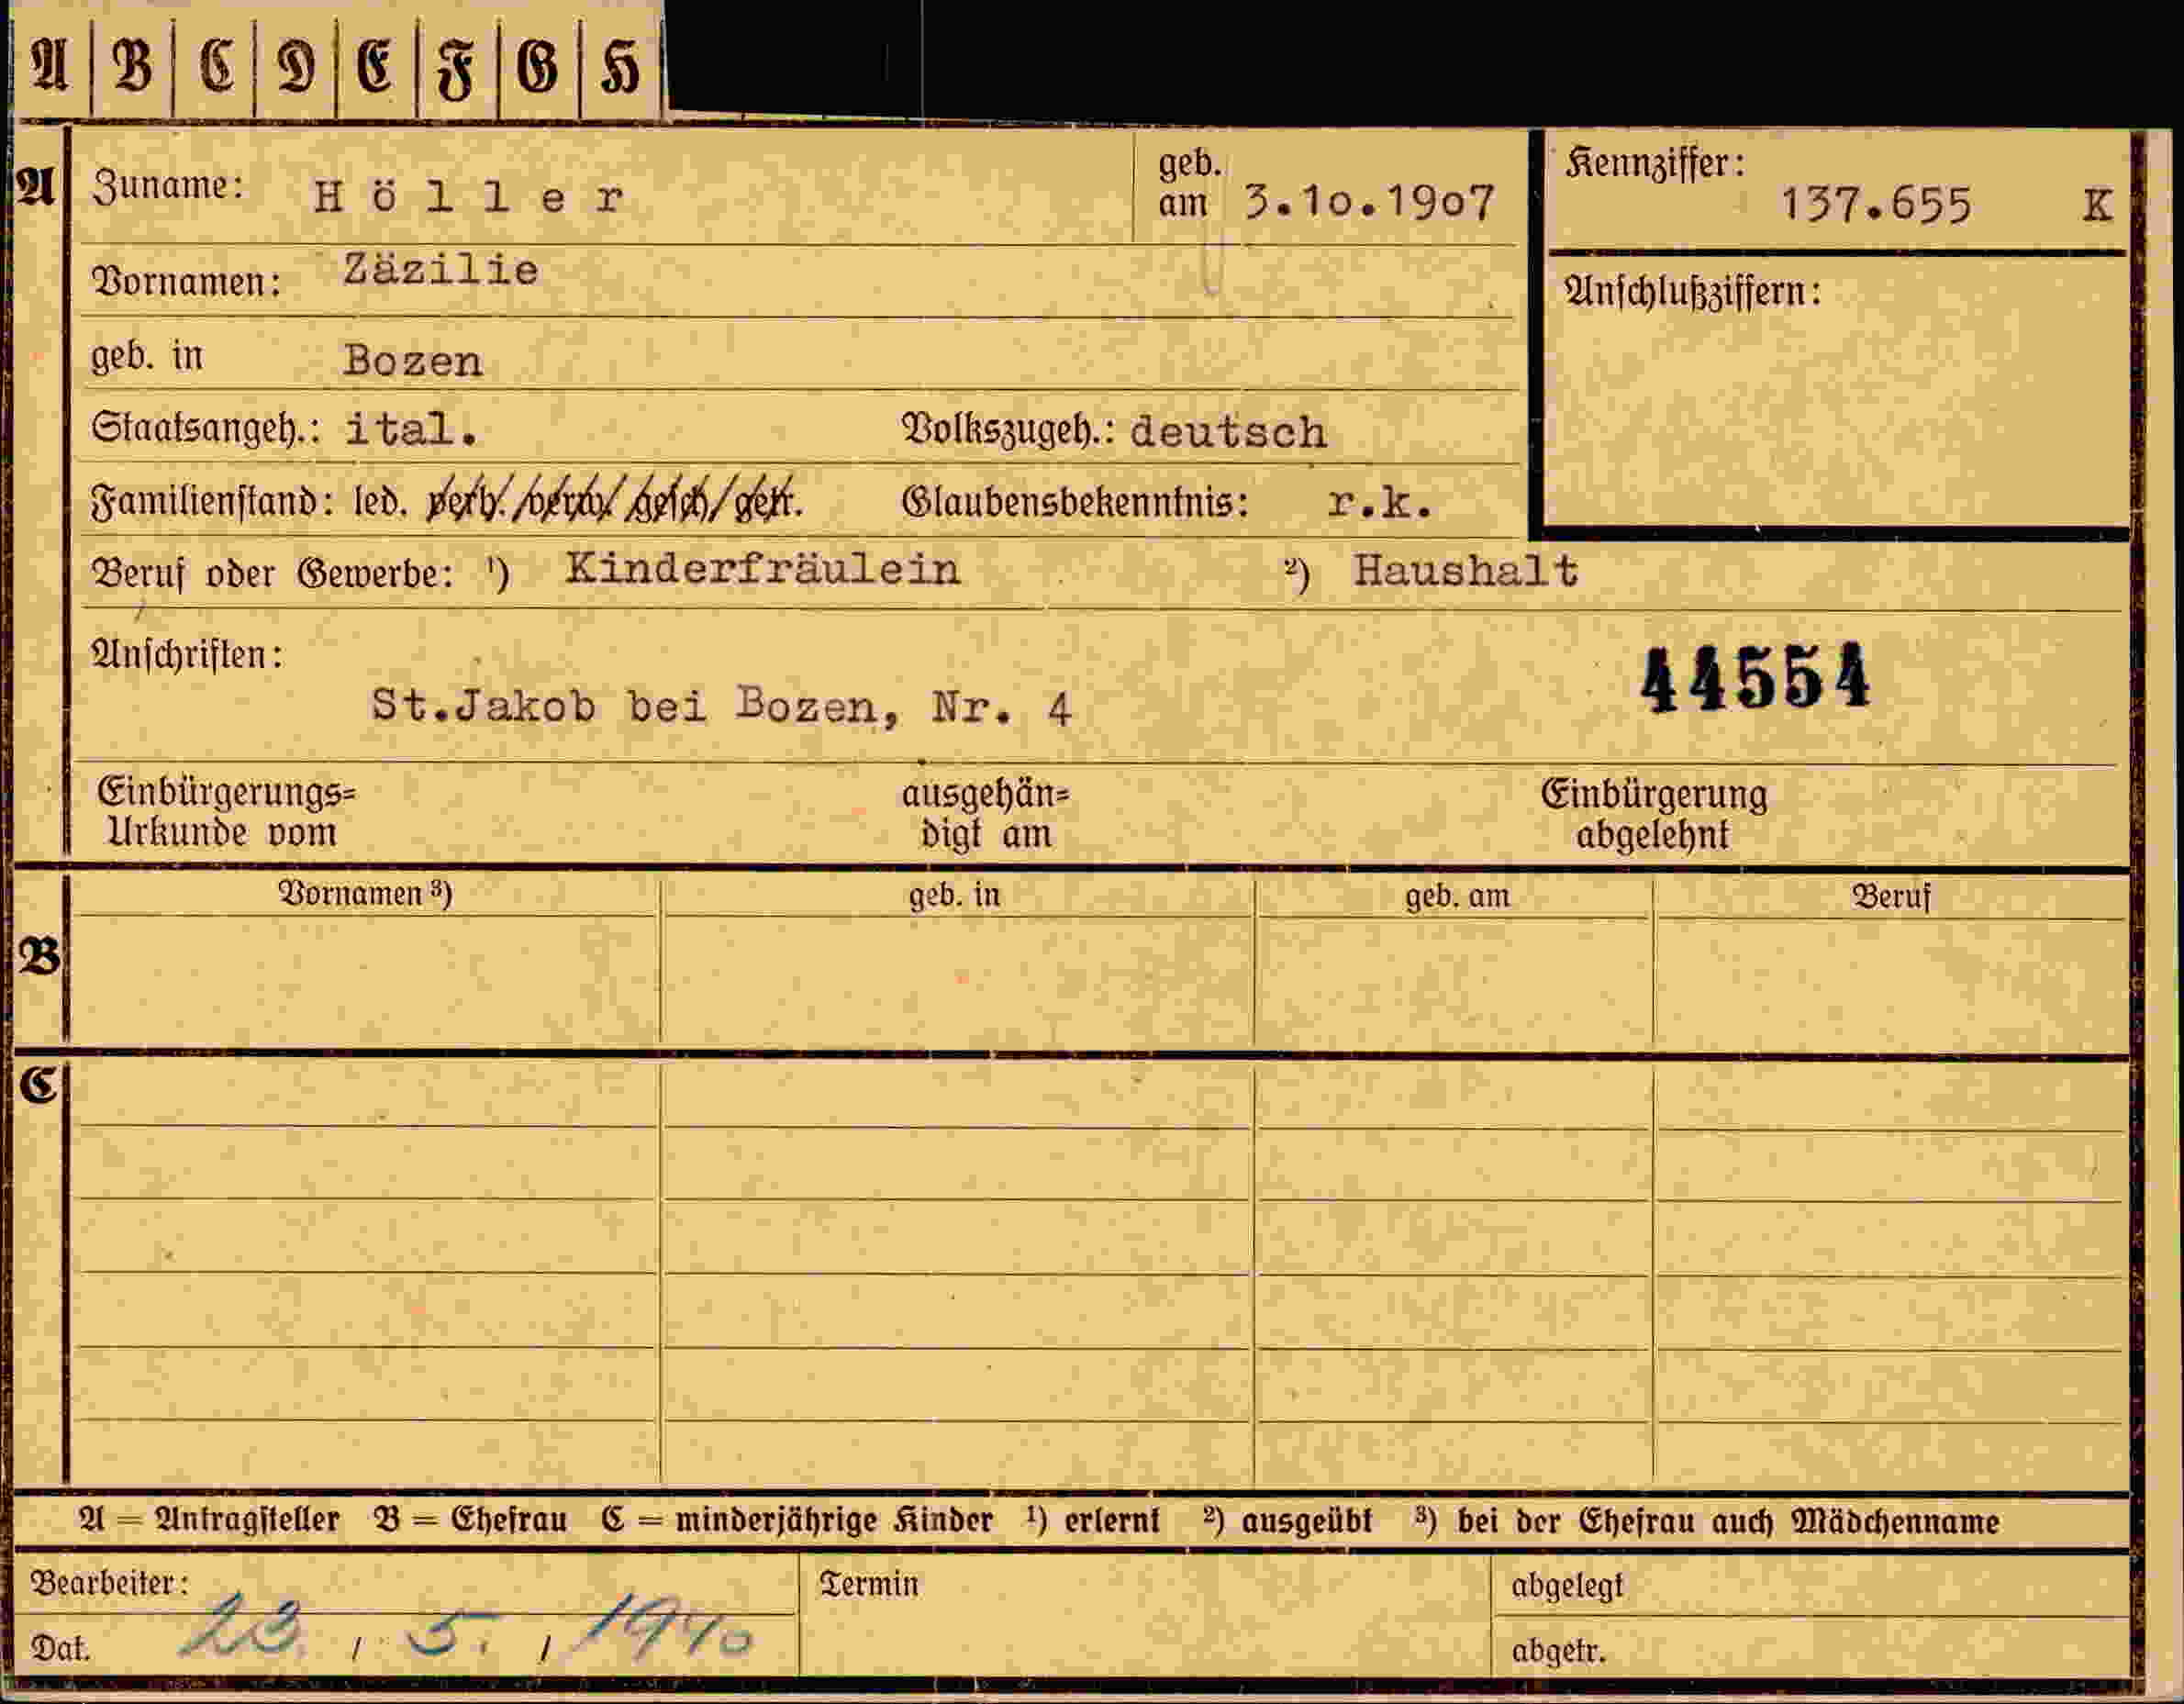 A B C D E F G H
A
Zuname: Höller
geb. am 3.10.1907
Kennziffer: 137.655 K
Vornamen: Zäzilie
Anschlußziffern:
geb. in Bozen
Staatsangeh.: ital. Volkszugeh.: deutsch
Familienstand: led. verh./verw/gesch/getr. Glaubensbekenntnis: r.k.
Beruf oder Gewerbe: ¹) Kinderfräulein ²) Haushalt
Anschriften:
44554
St.Jakob bei Bozen, Nr. 4
Einbürgerungs= ausgehän= Einbürgerung
Urkunde vom digt am abgelehnt
Vornamen ³) geb. in geb. am Beruf
B
C
A = Antragsteller B = Ehefrau C = minderjährige Kinder ¹) erlernt ²) ausgeübt ³) bei der Ehefrau auch Mädchenname
Bearbeiter: Termin abgelegt
Dat. 23. / 5. / 1940 abgetr.